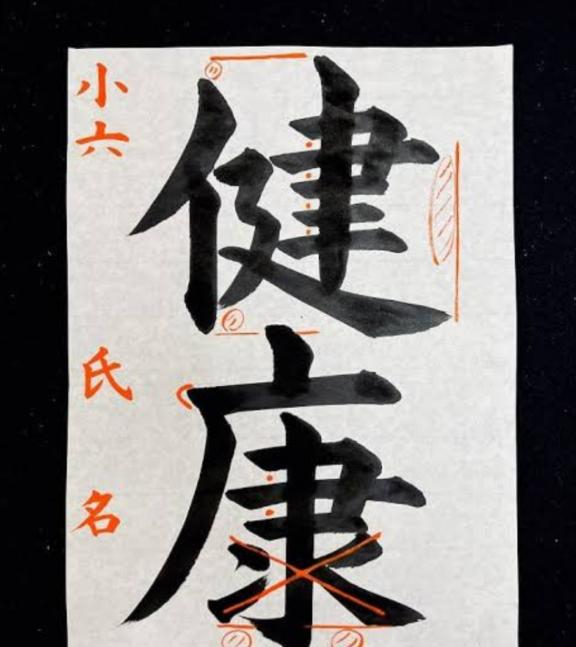 健康
小六 氏名